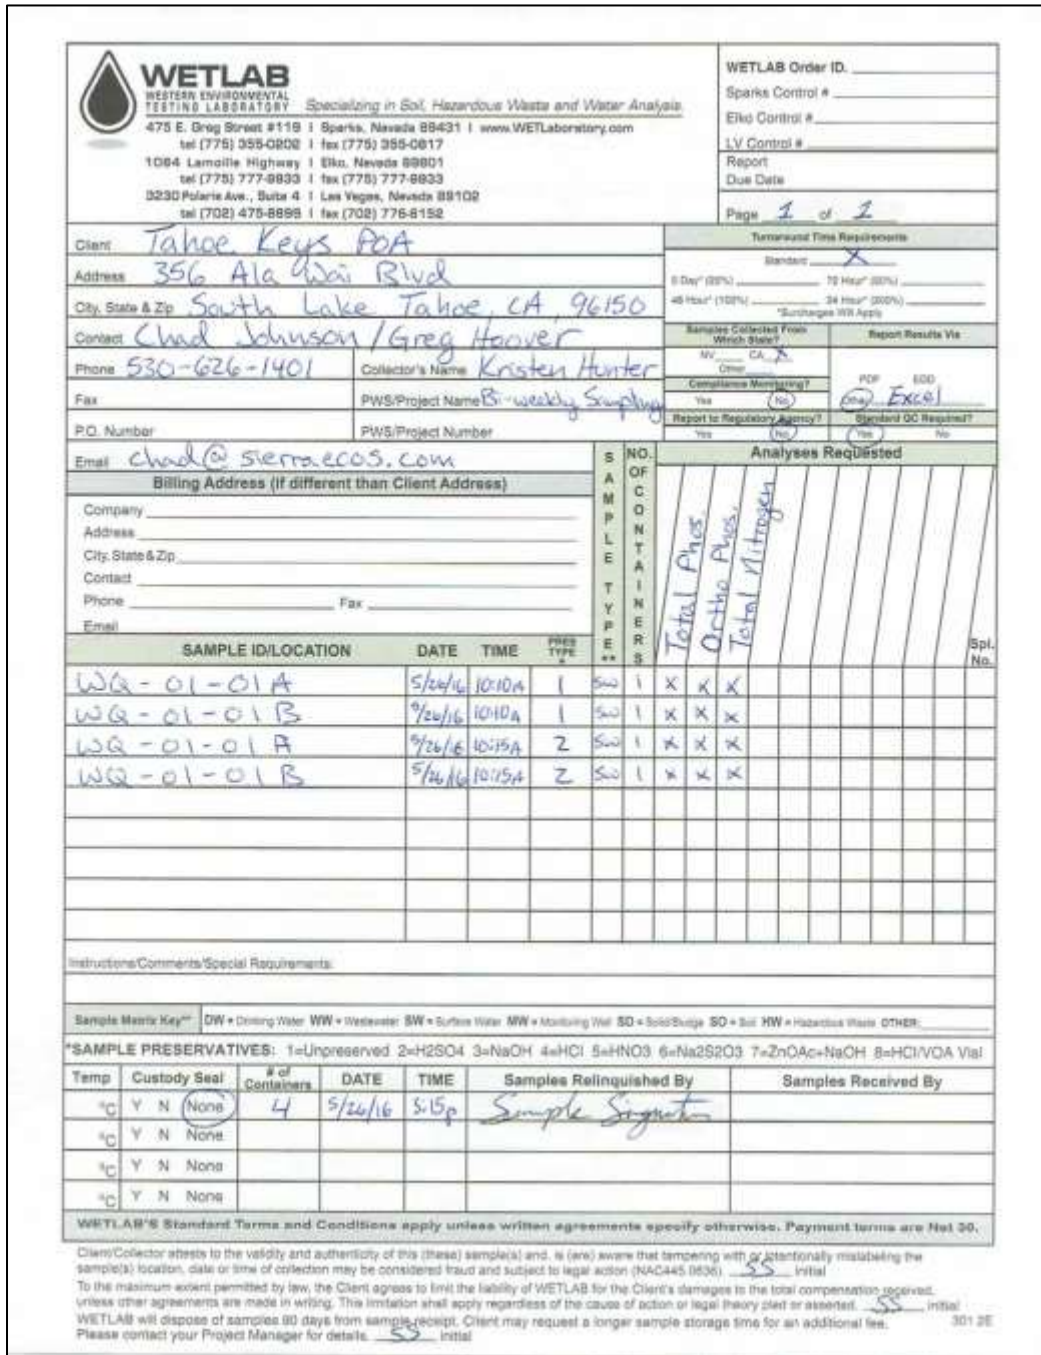 WETLAB
WESTERN ENVIRONMENTAL
TESTING LABORATORY Specializing in Soil, Hazardous Waste and Water Analysis.
475 E. Greg Street #119 | Sparks, Nevada 89431 | www.WETLaboratory.com
tel (775) 355-0202 | fax (775) 355-0817
1084 Lamoille Highway | Elko, Nevada 89801
tel (775) 777-9933 | fax (775) 777-9933
3230 Polaris Ave., Suite 4 | Las Vegas, Nevada 89102
tel (702) 475-8899 | fax (702) 776-6152
WETLAB Order ID.
Sparks Control #
Elko Control #
LV Control #
Report
Due Date
Page 1 of 1
Client Tahoe Keys POA
Address 356 Ala Wai Blvd
City, State & Zip South Lake Tahoe, CA, 96150
Contact Chad Johnson / Greg Hoover
Phone 530-626-1401 Collector's Name Kristen Hunter
Fax PWS/Project Name Bi-weekly Sampling
P.O. Number PWS/Project Number
Email chad@sierraecos.com
Turnaround Time Requirements
Standard X
5 Day* (25%) 72 Hour* (50%)
48 Hour* (100%) 24 Hour* (200%)
*Surcharges Will Apply
Samples Collected From Which State?
NV CA X
Other
Report Results Via
PDF EDD
Other Excel
Compliance Monitoring?
Yes No
Report to Regulatory Agency?
Yes No
Standard QC Required?
Yes No
Billing Address (if different than Client Address)
Company
Address
City, State & Zip
Contact
Phone Fax
Email
SAMPLE TYPE **
NO. OF CONTAINERS
Analyses Requested
Total Phos.
Ortho Phos.
Total Nitrogen
Spl. No.
SAMPLE ID/LOCATION DATE TIME PRES TYPE *
WQ-01-01A 5/26/16 10:10A 1 SW 1 X X X
WQ-01-01B 5/26/16 10:10A 1 SW 1 X X X
WQ-01-01A 5/26/16 10:15A 2 SW 1 X X X
WQ-01-01B 5/26/16 10:15A 2 SW 1 X X X
Instructions/Comments/Special Requirements:
Sample Matrix Key** DW = Drinking Water WW = Wastewater SW = Surface Water MW = Monitoring Well SD = Solid/Sludge SO = Soil HW = Hazardous Waste OTHER:
*SAMPLE PRESERVATIVES: 1=Unpreserved 2=H2SO4 3=NaOH 4=HCl 5=HNO3 6=Na2S2O3 7=ZnOAc+NaOH 8=HCl/VOA Vial
Temp Custody Seal # of Containers DATE TIME Samples Relinquished By Samples Received By
°C Y N None 4 5/26/16 5:15p Sample Signature
°C Y N None
°C Y N None
°C Y N None
WETLAB'S Standard Terms and Conditions apply unless written agreements specify otherwise. Payment terms are Net 30.
Client/Collector attests to the validity and authenticity of this (these) sample(s) and, is (are) aware that tampering with or intentionally mislabeling the
sample(s) location, date or time of collection may be considered fraud and subject to legal action (NAC445.0636). SS initial
To the maximum extent permitted by law, the Client agrees to limit the liability of WETLAB for the Client's damages to the total compensation received,
unless other agreements are made in writing. This limitation shall apply regardless of the cause of action or legal theory pled or asserted. SS initial
WETLAB will dispose of samples 90 days from sample receipt. Client may request a longer sample storage time for an additional fee.
Please contact your Project Manager for details. SS initial
301.2E